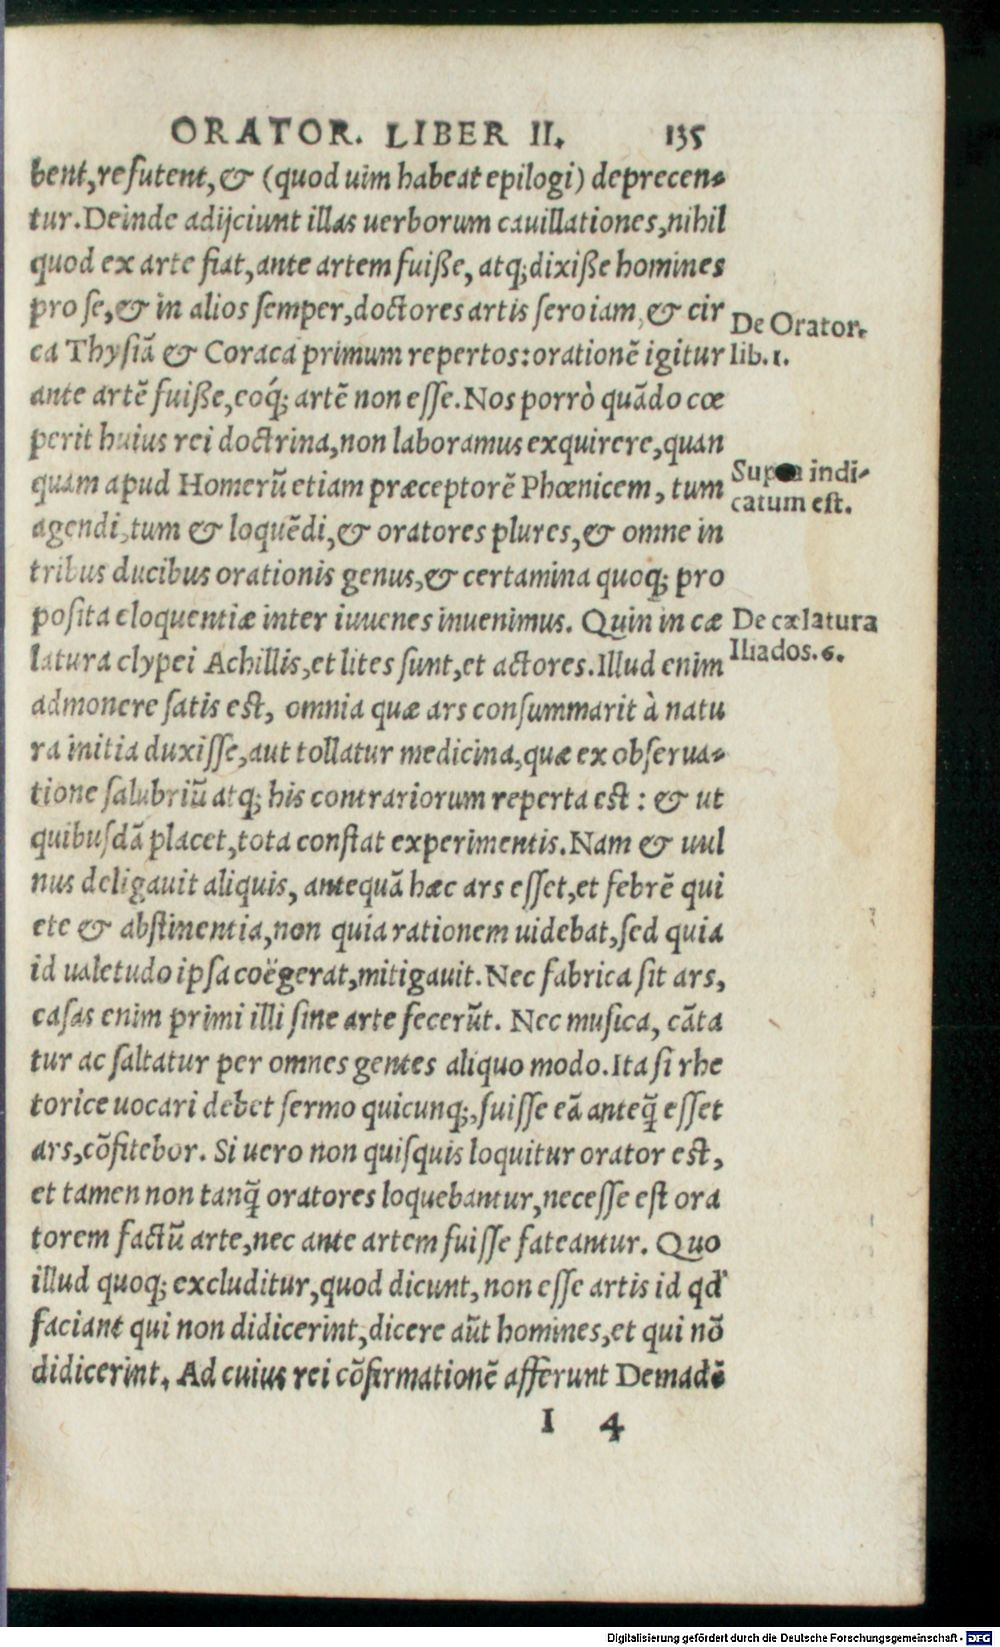 ORATOR. LIBER II. 135
bent, refutent, & (quod uim habeat epilogi) deprecen-
tur. Deinde adijciunt illas uerborum cauillationes, nihil
quod ex arte fiat, ante artem fuiße, atq; dixiße homines
pro se, & in alios semper, doctores artis sero iam, & cir
De Orator.
ca Thysiā & Coraca primum repertos: orationē igitur
lib. 1.
ante artē fuiße, eoq́; artē non esse. Nos porrò quādo cœ
perit huius rei doctrina, non laboramus exquirere, quan
quam apud Homerū etiam præceptorē Phœnicem, tum
Supra indi-
catum est.
agendi, tum & loquēdi, & oratores plures, & omne in
tribus ducibus orationis genus, & certamina quoq; pro
posita eloquentiæ inter iuuenes inuenimus. Quin in cæ
De cælatura
latura clypei Achillis, et lites sunt, et actores. Illud enim
Iliados. 6.
admonere satis est, omnia quæ ars consummarit à natu
ra initia duxisse, aut tollatur medicina, quæ ex obserua-
tione salubriū atq; his contrariorum reperta est: & ut
quibusdā placet, tota constat experimentis. Nam & uul
nus deligauit aliquis, antequā hæc ars esset, et febrē qui
ete & abstinentia, non quia rationem uidebat, sed quia
id ualetudo ipsa coëgerat, mitigauit. Nec fabrica sit ars,
casas enim primi illi sine arte fecerūt. Nec musica, cāta
tur ac saltatur per omnes gentes aliquo modo. Ita si rhe
torice uocari debet sermo quicunq;, fuisse eā anteq̄ esset
ars, cōfitebor. Si uero non quisquis loquitur orator est,
et tamen non tanq̄ oratores loquebantur, necesse est ora
torem factū arte, nec ante artem fuisse fateantur. Quo
illud quoq; excluditur, quod dicunt, non esse artis id qd'
faciant qui non didicerint, dicere aūt homines, et qui nō
didicerint. Ad cuius rei cōfirmationē afferunt Demadē
I 4
Digitalisierung gefördert durch die Deutsche Forschungsgemeinschaft - DFG